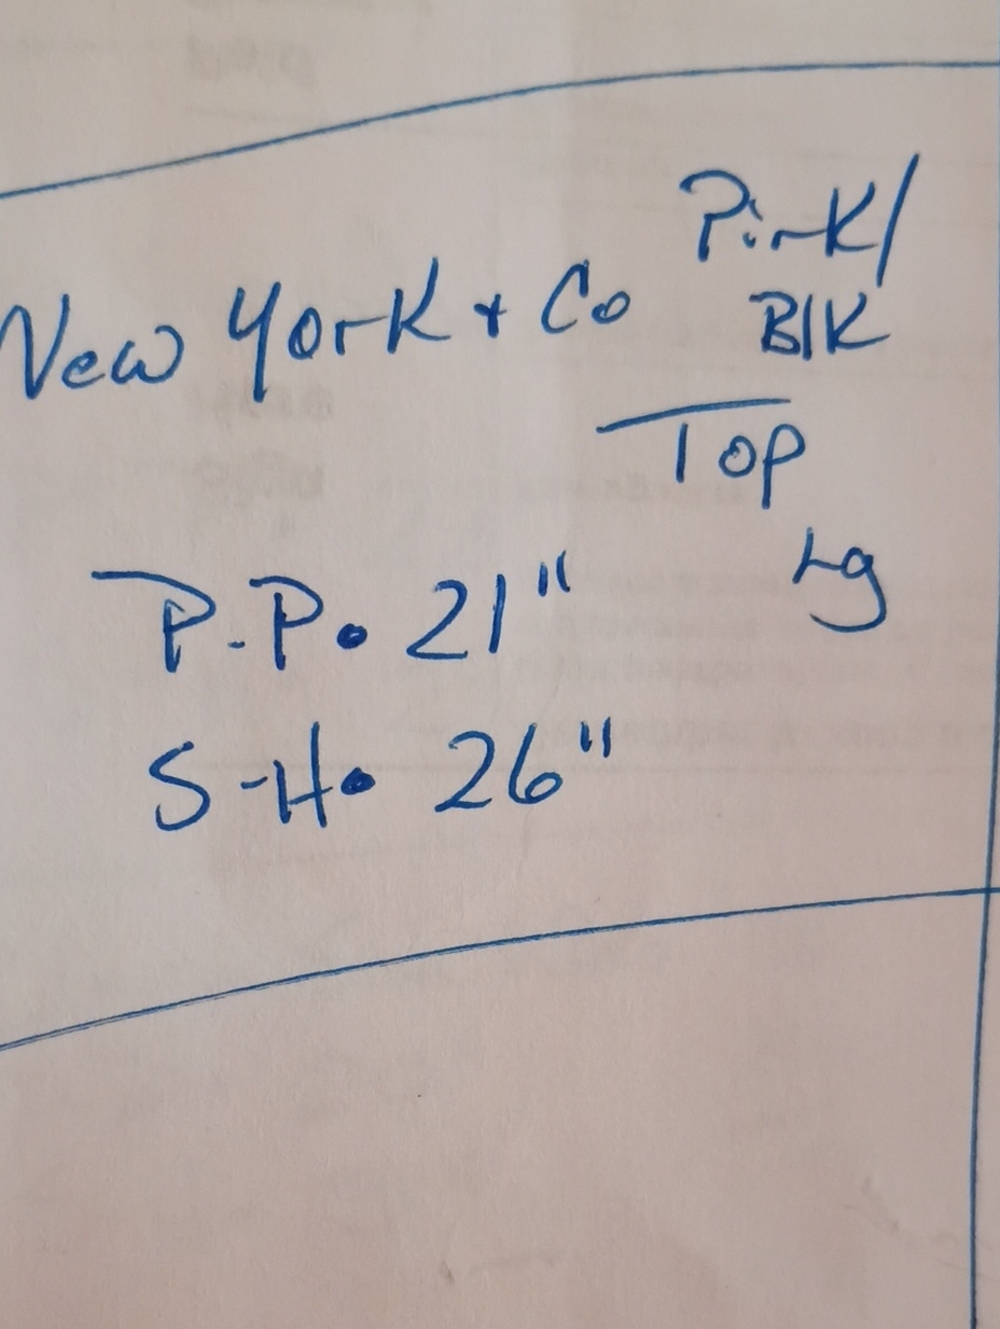 New York + Co Pink/
Blk
Top
Lg
P-P. 21"
S-H. 26"